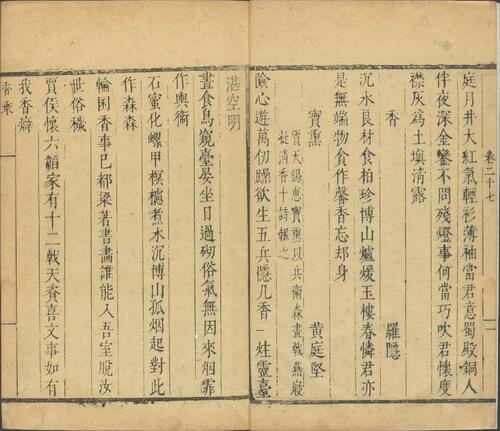 卷二十七
庭月井大紅氣輕衫薄袖當君意蜀殿銅人
伴夜深金鑾不問殘燈事何當巧吹君懷度
襟灰為土填清露
香
羅隱
沉水良材食柏珍博山爐煖玉樓春憐君亦
是無端物貪作馨香忘却身
寶熏
黃庭堅
賈天錫惠寶熏以兵衛森畫戟燕寢
凝清香十詩報之
險心遊萬仞躁欲生五兵隱几香一炷靈臺
湛空明
晝食鳥窺臺晏坐日過砌俗氣無因來烟霏
作輿衛
石蜜化螺甲榠樝煮水沉博山孤烟起對此
作森森
輪囷香事巳都梁著書畫誰能入吾室脫汝
世俗穢
賈侯懷六韜家有十二戟天資喜文事如有
我香癖
香乘